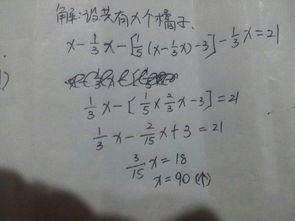 解:设共有x个橘子.
x-1/3x-[1/5(x-1/3x)-3]-1/3x=21
1/3x-[1/5×2/3x-3]=21
1/3x-2/15x+3=21
3/15x=18
x=90(个)